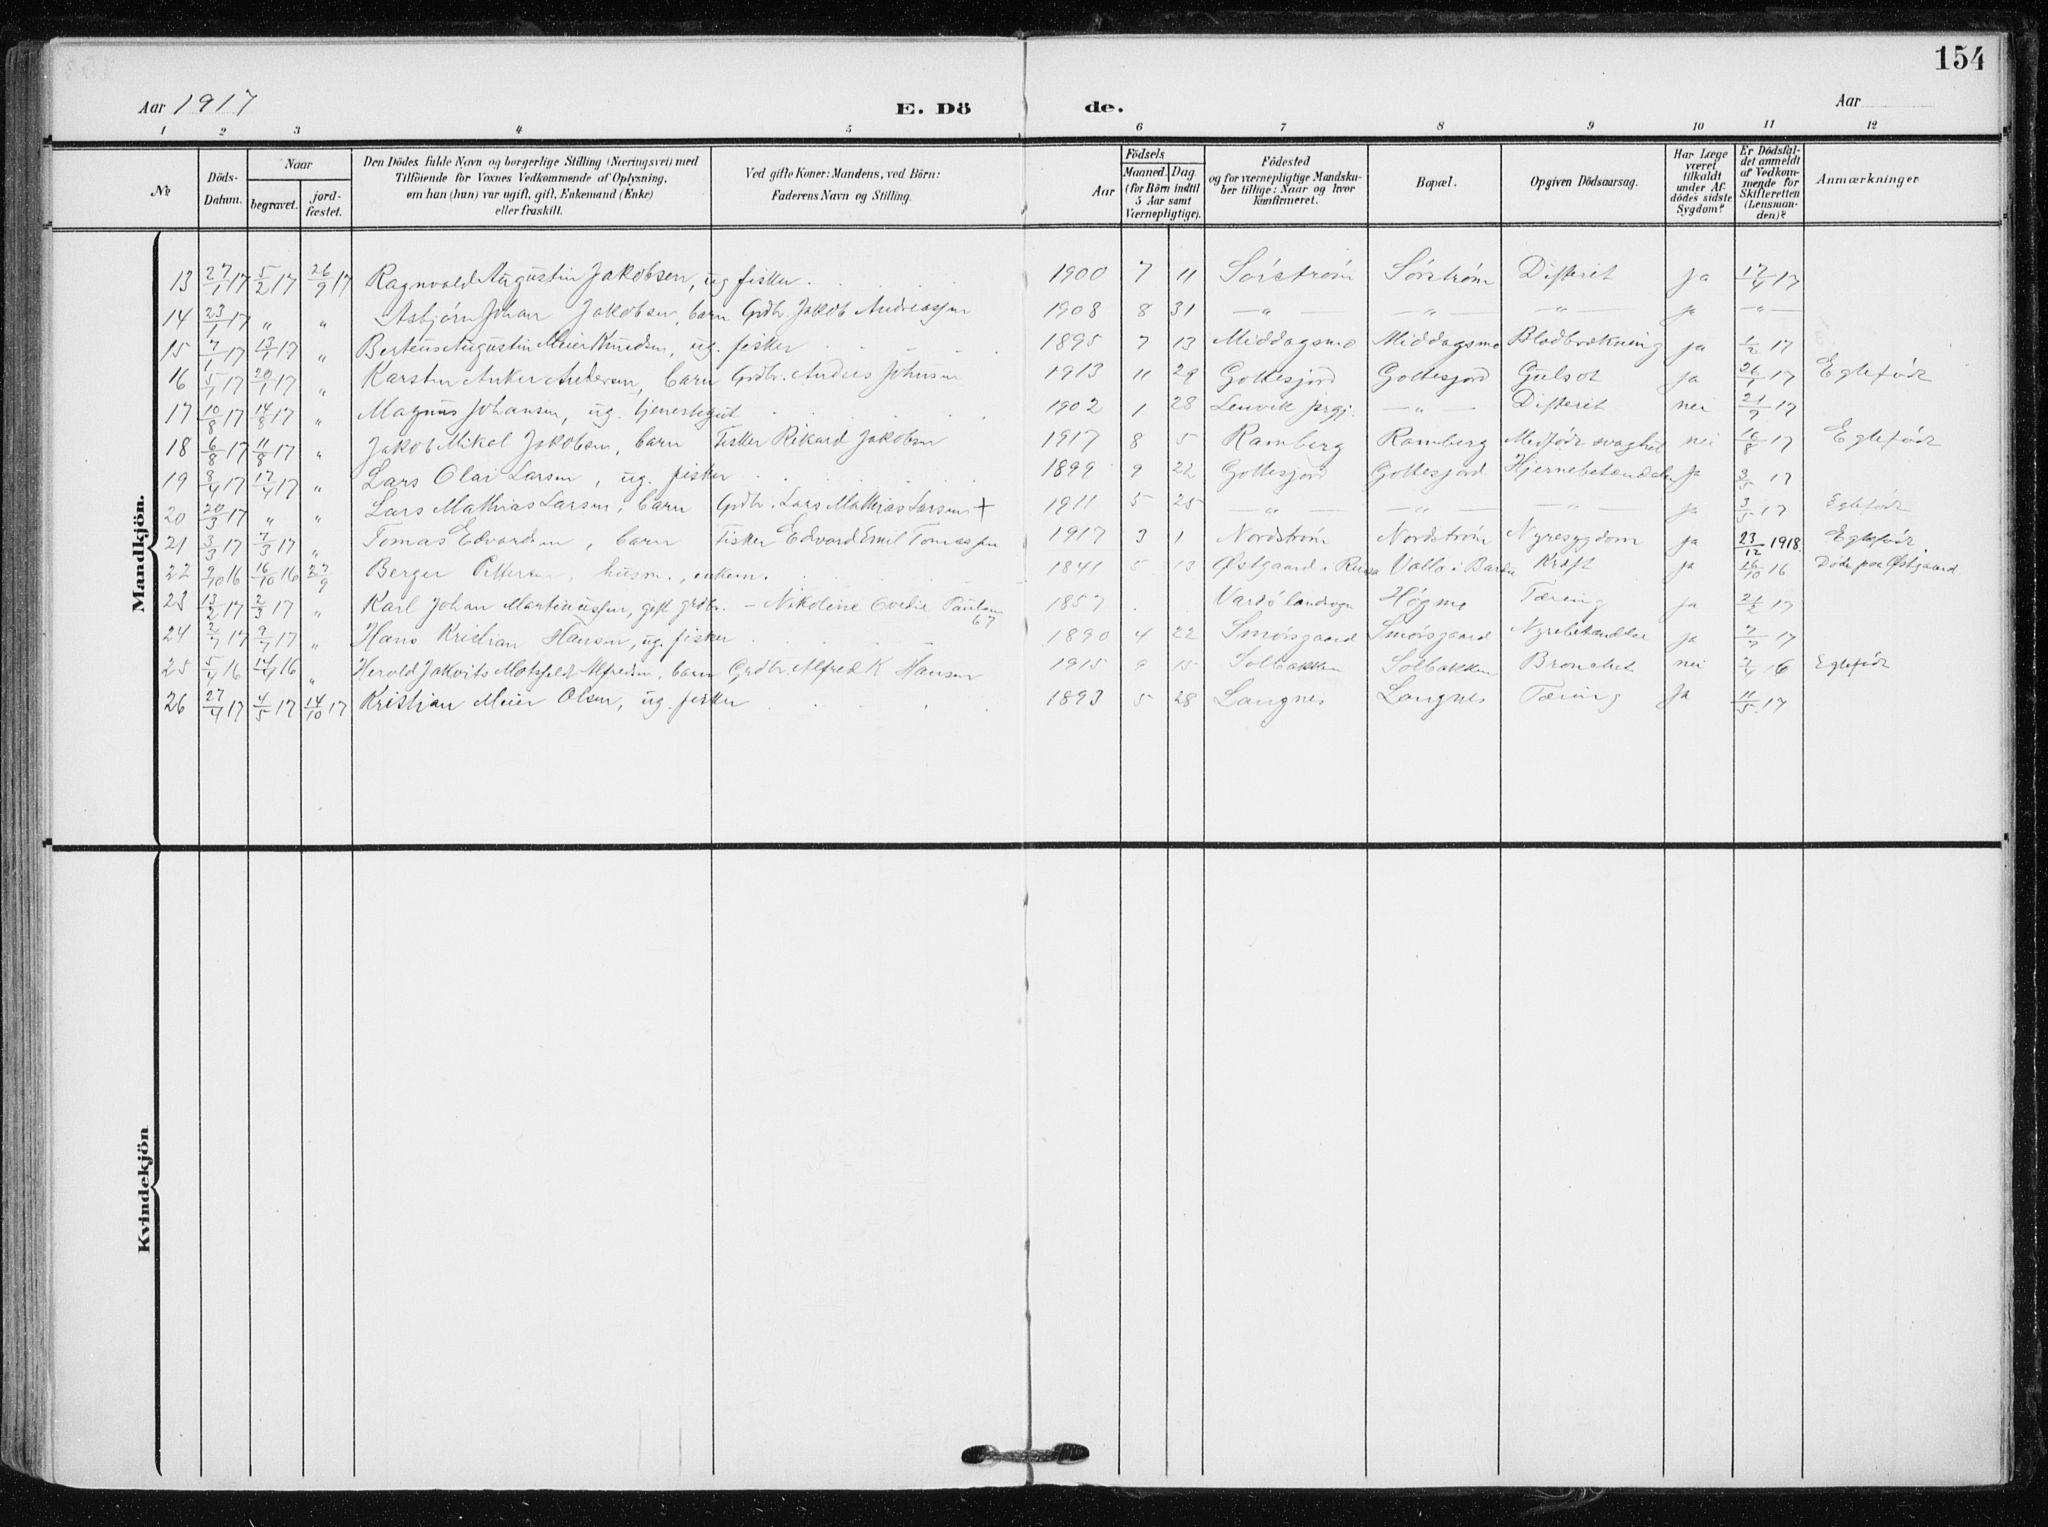 154
Aar 1917 E. Dö de. Aar
1 2 3 4 5 6 7 8 9 10 11 12
№ Döds-Datum. Naar begravet. jord-fæstet. Den Dödes fulde Navn og borgerlige Stilling (Næringsvei) med Tilföiende for Voxnes Vedkommende af Oplysning, om han (hun) var ugift, gift, Enkemand (Enke) eller fraskilt. Ved gifte Koner: Mandens, ved Börn: Faderens Navn og Stilling. Födsels Aar Maaned. Dag. (for Börn indtil 5 Aar samt Værnepligtige). Födested og for værnepligtige Mandskaber tillige: Naar og hvor Konfirmeret. Bopæl. Opgiven Dödsaarsag. Har Læge været tilkaldt under Afdödes sidste Sygdom? Er Dödsfaldet anmeldt af Vedkommende for Skifteretten (Lensmanden)? Anmærkninger
Mandkjön.
13 27/1 17 5/2 17 26/9 17 Ragnvald Augustin Jakobsen, ug fisker 1900 7 11 Sørstrøm Sørstrøm Difterit Ja 17/4 17
14 23/1 17 " " Asbjørn Johan Jakobsen, barn Grdbr. Jakob Andreassen 1908 8 31 — " — — " — — " — ja — " —
15 7/1 17 13/1 17 " Berteus Augustin Meier Knudsen, ug. fisker 1895 7 13 Middagsmo Middagsmo Blodbrækning ja 1/2 17
16 5/1 17 20/1 17 " Karsten Anker Andersen, barn Grdbr. Andreas Johnsen 1913 11 29 Gottesjord Gottesjord Gulsot ja 26/1 17 Egtefødt
17 10/8 17 14/8 17 " Magnus Johansen, ug. tjenestegut 1902 1 28 Lenvik prgj. — " — Difterit nei 21/9 17
18 6/8 17 11/8 17 " Jakob Mikel Jakobsen, barn Fisker Rikard Jakobsen 1917 8 5 Ramberg Ramberg Medfødt svaghet nei 16/8 17 Egtefødt
19 8/4 17 17/4 17 " Lars Olai Larsen, ug. fisker 1899 9 22 Gottesjord Gottesjord Hjernebetændelse Ja 3/5 17
20 20/3 17 " " Lars Mathias Larsen, barn Grdbr. Lars Mathias Larsen + 1911 5 25 — " — — " — — " — ja 3/5 17 Egtefødt
21 3/3 17 7/3 17 " Tomas Edvardsen, barn Fisker Edvard Emil Tomassen 1917 3 1 Nordstrøm Nordstrøm Nyresygdom ja 23/12 1918. Egtefødt
22 9/10 16 16/10 16 27/9 Berger Pettersen, husm., enkem. 1841 5 13 Østgaard i Valla i Bardu Kræft ja 26/10 16 Døde paa Østgaard
23 13/2 17 2/3 17 " Karl Johan Martinussen, gift grdbr. – Nikoline Paulsen 67 1857 Vardø landsogn Høgmo Tæring ja 21/3 17
24 2/7 17 9/7 17 " Hans Kristian Hansen, ug. fisker 1890 4 22 Smørsgaard Smørsgaard Nyrebetændelse ja 7/7 17
25 5/4 16 14/4 16 " Herold Motsfeldt Alfredsen, barn Grdbr. Alfred K Hansen 1915 9 15 Solbakken Solbakken Bronchit nei 7/4 16 Egtefødt
26 27/4 17 4/5 17 14/10 17 Kristian Meier Olsen, ug. fisker 1893 5 28 Langnes Langnes Tæring Ja 11/5 17
Kvindekjön